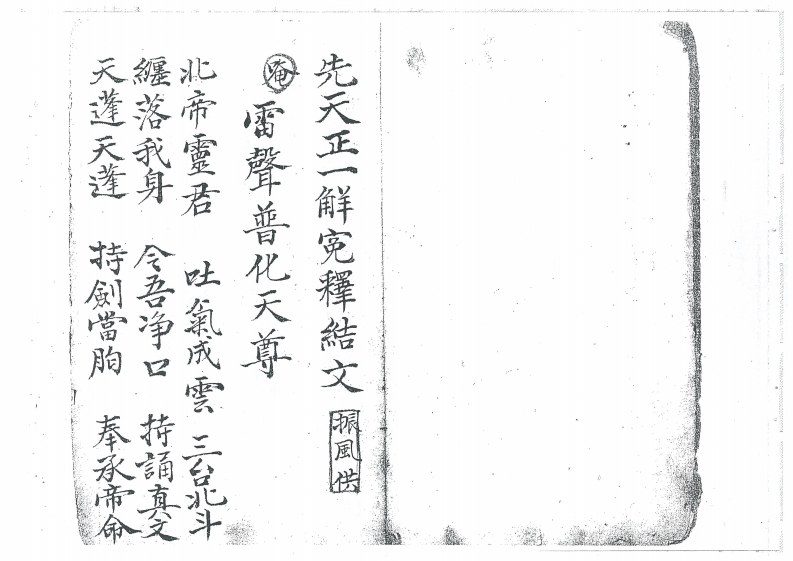 先天正一解寃釋結文 振風供
唵 雷聲普化天尊
北帝靈君 吐氣成雲 三台北斗
纏落我身 令吾净口 持誦真文
天蓬天蓬 持劍當胸 奉承帝命